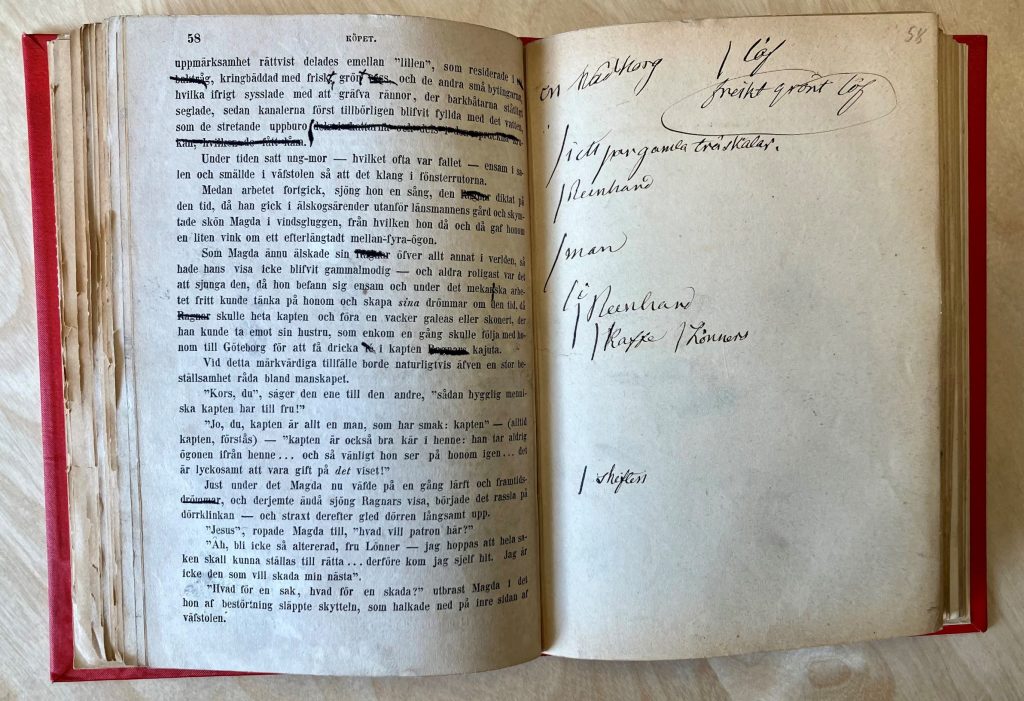 58
KÖPET.
uppmärksamhet rättvist delades emellan "lillen", som residerade i
kringbäddad med friskt grönt och de andra små bytingarna,
hvilka ifrigt sysslade med att gräfva rännor, der barkbåtarna ståtligt
seglade, sedan kanalerna först tillbörligen blifvit fyllda med det vatten,
som de stretande uppburo
kan, hvilken
Under tiden satt ung-mor — hvilket ofta var fallet — ensam i sa-
len och smällde i väfstolen så att det klang i fönsterrutorna.
Medan arbetet fortgick, sjöng hon en sång, den Ragnar diktat på
den tid, då han gick i älskogsärender utanför länsmannens gård och skym-
tade skön Magda i vindsgluggen, från hvilken hon då och då gaf honom
en liten vink om ett efterlängtadt mellan-fyra-ögon.
Som Magda ännu älskade sin Ragnar öfver allt annat i verlden, så
hade hans visa icke blifvit gammalmodig — och aldra roligast var det
att sjunga den, då hon befann sig ensam och under det mekaniska arbe-
tet fritt kunde tänka på honom och skapa sina drömmar om den tid, då
Ragnar skulle heta kapten och föra en vacker galeas eller skonert, der
han kunde ta emot sin hustru, som enkom en gång skulle följa med ho-
nom till Göteborg för att få dricka i kapten Ragnars kajuta.
Vid detta märkvärdiga tillfälle borde naturligtvis äfven en stor be-
ställsamhet råda bland manskapet.
"Kors, du", säger den ene till den andre, "sådan hygglig menni-
ska kapten har till fru!"
"Jo, du, kapten är allt en man, som har smak: kapten" — (alltid
kapten, förstås) — "kapten är också bra kär i henne: han tar aldrig
ögonen ifrån henne... och så vänligt hon ser på honom igen... det
är lyckosamt att vara gift på det viset!"
Just under det Magda nu väfde på en gång lärft och framtids-
drömmar, och derjemte ändå sjöng Ragnars visa, började det rassla på
dörrklinkan — och straxt derefter gled dörren långsamt upp.
"Jesus", ropade Magda till, "hvad vill patron här?"
"Åh, bli icke så altererad, fru Lönner — jag hoppas att hela sa-
ken skall kunna ställas till rätta... derföre kom jag sjelf hit. Jag är
icke den som vill skada min nästa".
"Hvad för en sak, hvad för en skada?" utbrast Magda i det
hon af bestörtning släppte skytteln, som halkade ned på inre sidan af
väfstolen.
58
löf
en
friskt grönt löf
i ett par gamla träskålar.
Reinhard
man
i
Reinhard
Kaffe Lönners